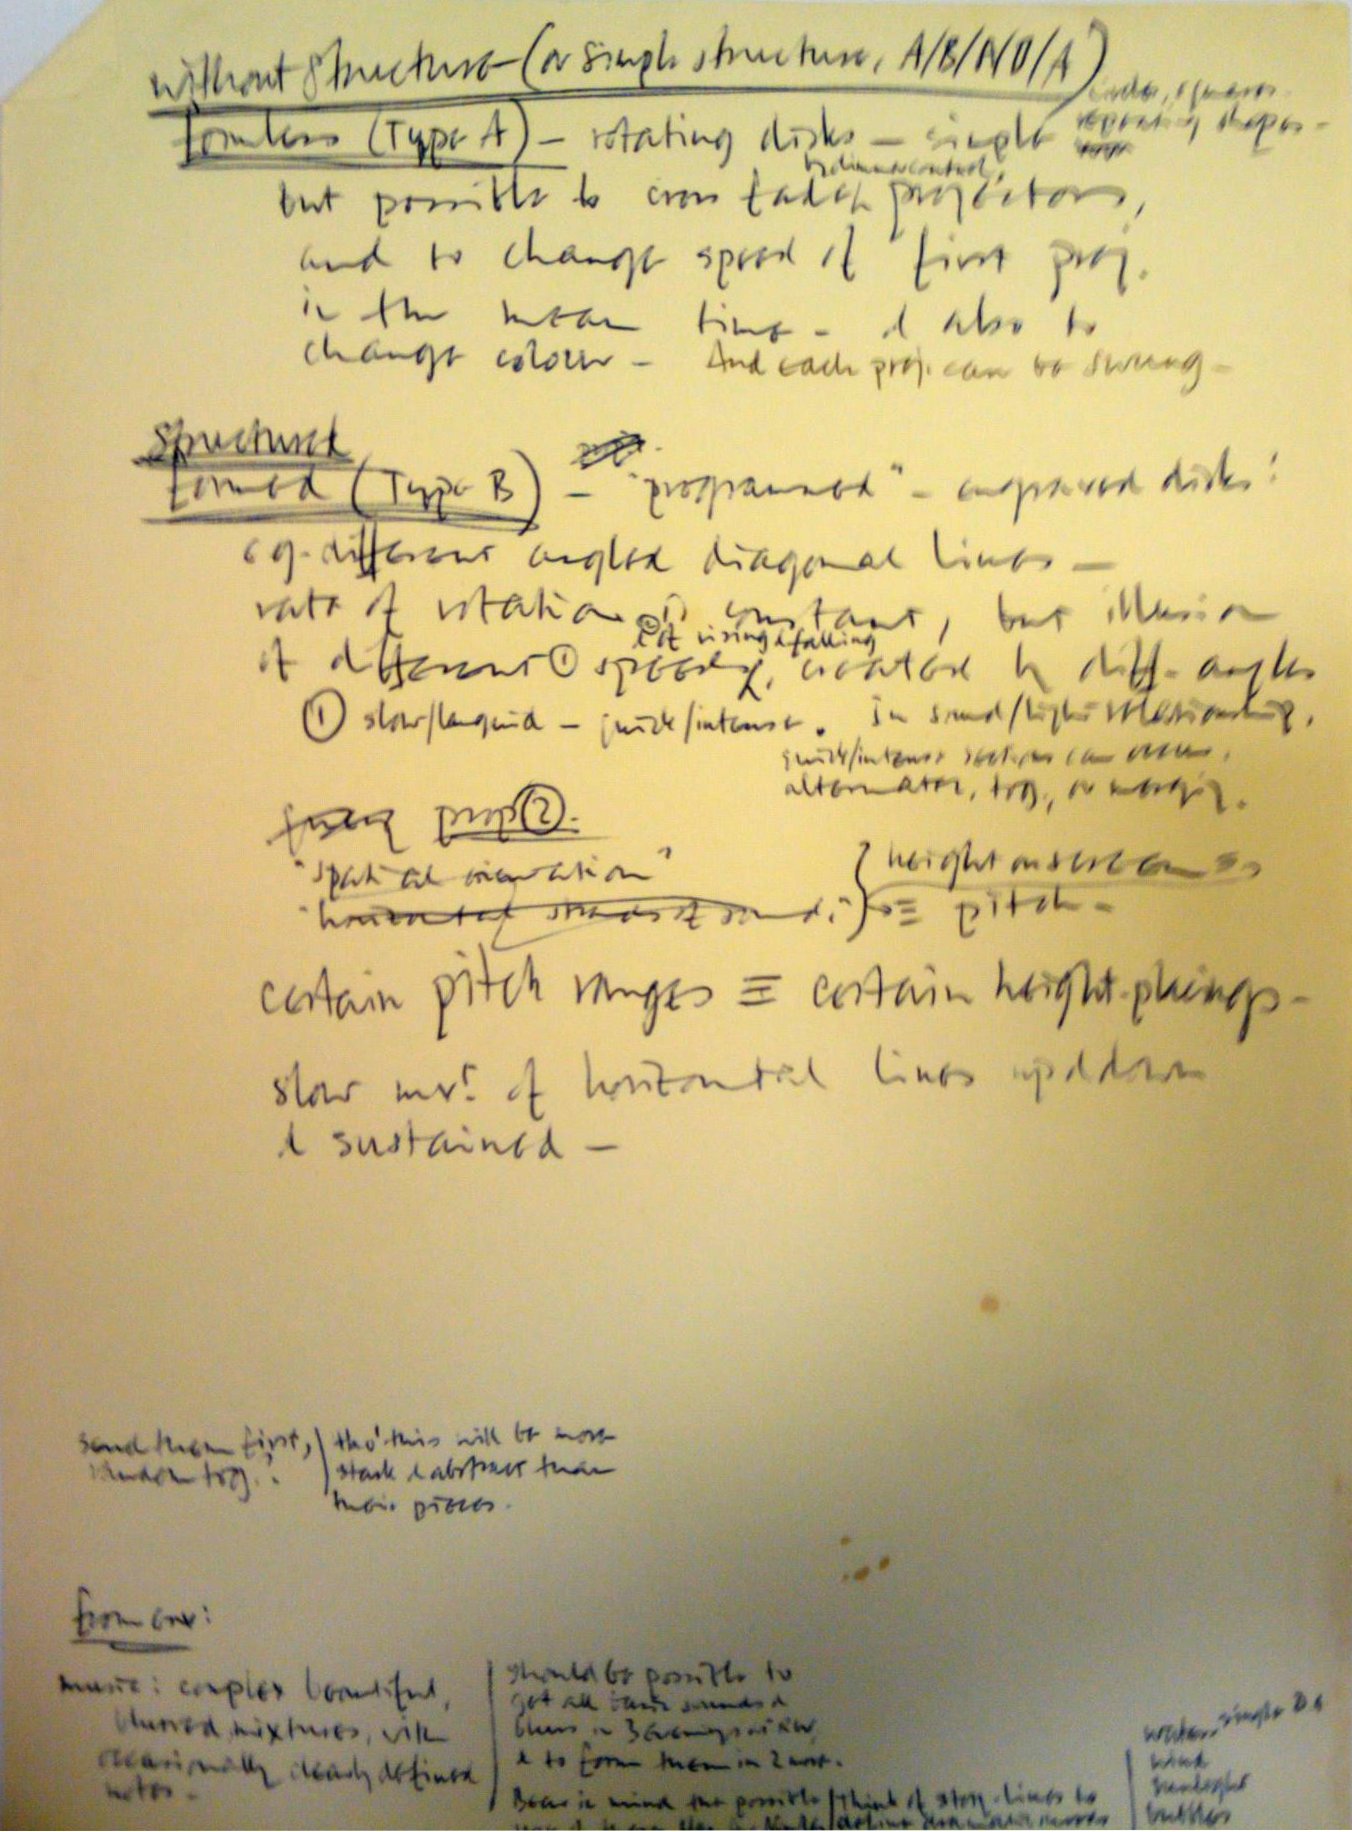 without structure (or simple structure, A/B/A/O/A)
squares
repeating shapes -
formless (Type A) - rotating disks - simple
by dimmer control,
but possible to cross fade projectors,
and to change speed of first proj.
in the mean time - & also to
change colour - And each proj. can be swung -
structured
formed (Type B) - "programmed" - engraved disks:
eg. different angled diagonal lines -
rate of rotation is constant, but illusion
② & of rising & falling
of different ① speeds, created by diff. angles
① slow/languid - quick/intense. In sound/light relationship,
quick/intense sections can
alternate, tog., or merging.
prop ②.
"spatial orientation"
horizontal strands of sound:
height on screen
≡ pitch -
certain pitch ranges ≡ certain height placings -
slow mvt. of horizontal lines up & down
& sustained -
send them first,
tog.?
tho' this will be more
stark & abstract than
their pieces.
from
music: complex beautiful,
blurred mixtures, with
occasionally clearly defined
notes.
should be possible to
get all basic sounds &
in 3 evenings at
& to form them in 2 more.
Bear in mind the possible
think of story-lines to
single
wind
sunlight
bubbles